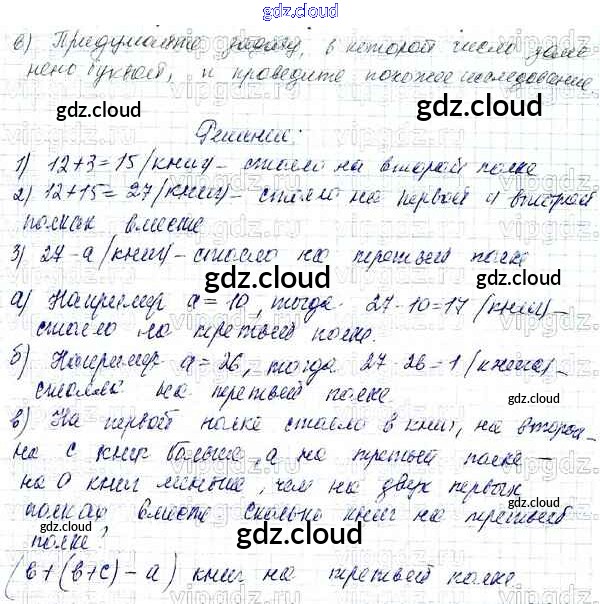 gdz.cloud
в) Придумайте задачу, в которой число заме
нено буквой, и проведите похожее исследование.
gdz.cloud gdz.cloud
Решение:
1) 12+3=15 (книг) – стояло на второй полке
2) 12+15=27 (книг) – стояло на первой и второй
полках вместе
3) 27-а (книг) – стояло на третьей полке
gdz.cloud
а) Например а=10, тогда 27-10=17 (книг) –
стояло на третьей полке.
б) Например а=26, тогда 27-26=1 (книга) –
стояла на третьей полке
gdz.cloud gdz.cloud
в) На первой полке стояло в книг, на второй –
на с книг больше, а на третьей полке –
на а книг меньше, чем на двух первых
полках вместе. Сколько книг на третьей
полке?
gdz.cloud gdz.cloud
gdz.cloud
(в+(в+с)-а) книг на третьей полке